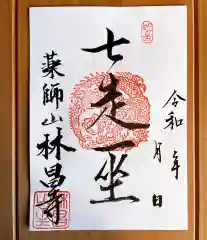 令和 年
月 日
七走一坐
薬師山 林昌寺